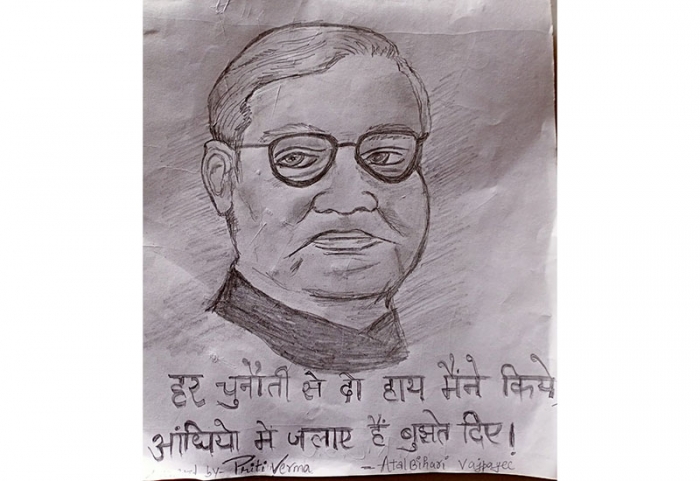 हर चुनौती से दो हाय मैंने किये,
आंघियो मे जलाए हैं बुझेत दिए।
by- Priti Verma – Atal Bihari Vajpayee